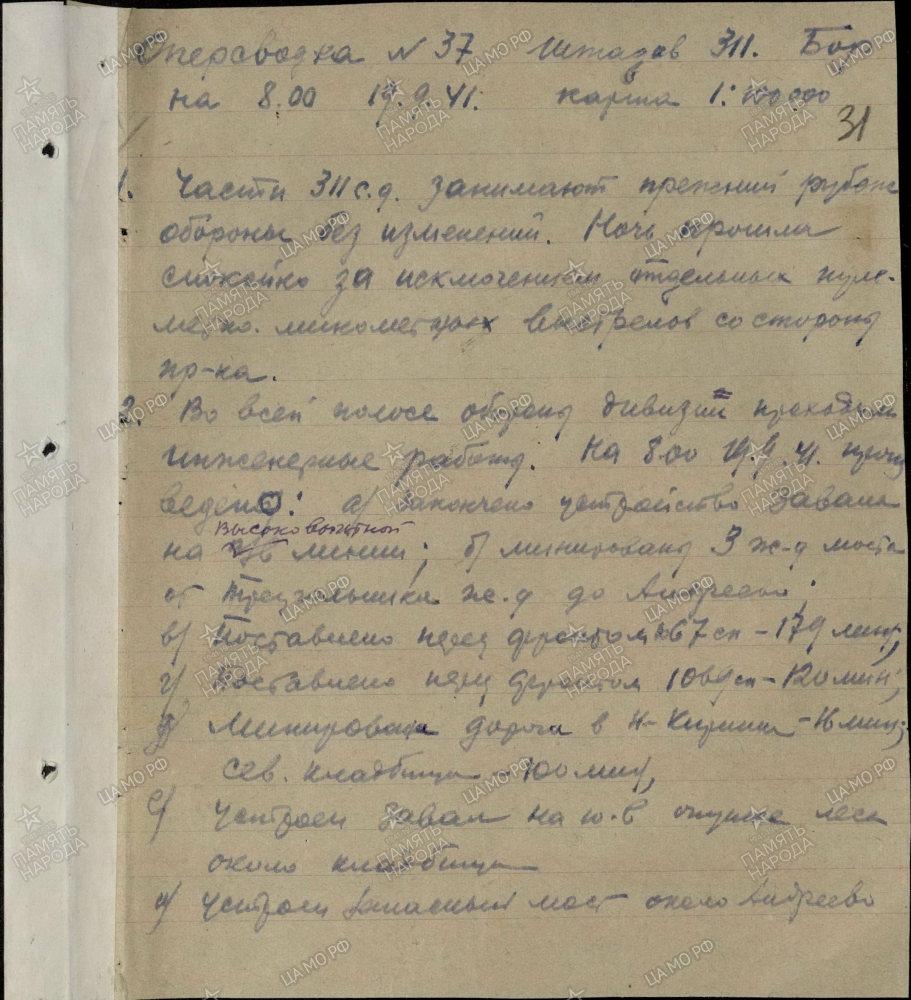 Оперсводка N 37 Штадив 311. Бор
на 8.00 19.9.41. карта 1:100000
31
1. Части 311 с.д. занимают прежний рубеж
обороны без изменений. Ночь прошла
спокойно за исключением отдельных пуле-
метно. минометных выстрелов со стороны
пр-ка.
2. Во всей полосе обороны дивизии проходят
инженерные работы. На 8.00 19.9.41. произ
ведено: а) закончено устройство завала
высоковольтной
на линии; б) минированы 3 ж-д моста
от треугольника ж.д до Андреево;
в) Поставлено перед фронтом 1067 сп - 179 мин;
г) Поставлено перед фронтом 1069 сп - 120 мин;
д) Минирована дорога в Н-Кириши - 16 мин;
сев. кладбища - 100 мин,
е) Устроен завал на ю.-в опушке леса
около кладбища
ж) Устроен запасный мост около Андреево